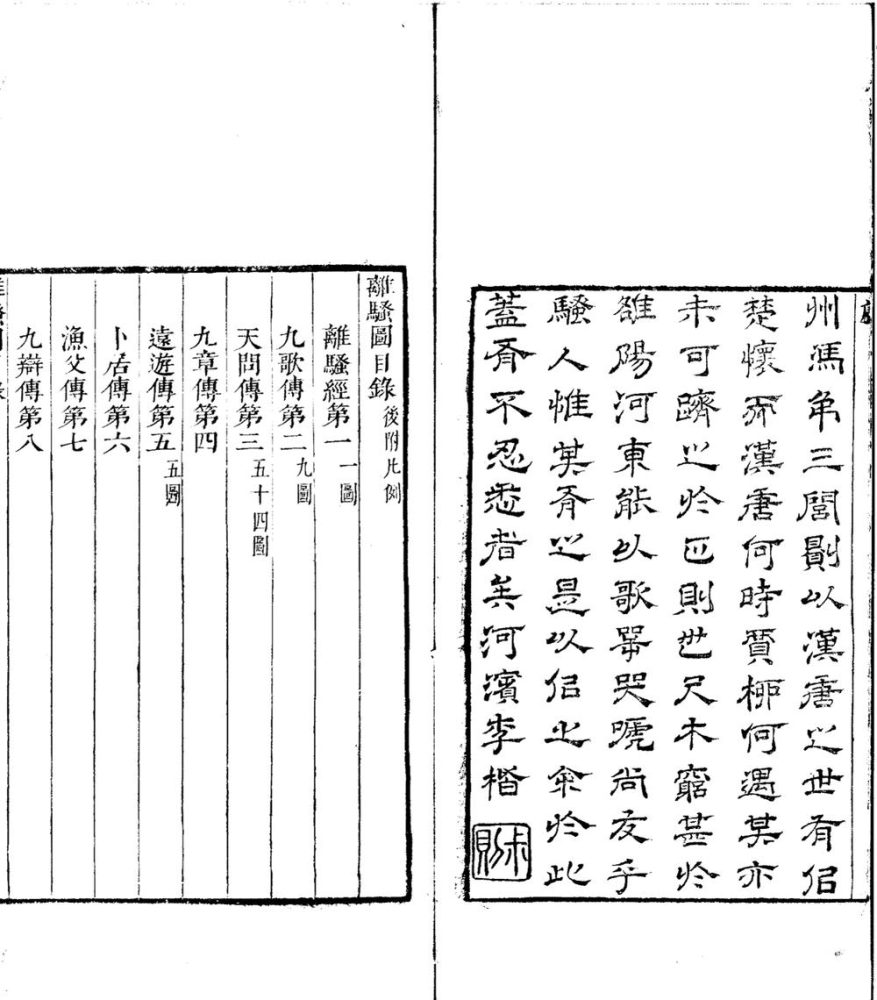 州馮弔三閭以漢唐之世有佀
楚懷而漢唐何時賈柳何遇其亦
未可躋之於正則世尺木窮甚於
雒陽河東能以歌咢哭唬尚友乎
騷人惟其有之是以佀之余於此
蓋有不忍悉者矣河濱李楷
叔則
離騷圖目錄 後附凡例
離騷經第一 一圖
九歌傳第二 九圖
天問傳第三 五十四圖
九章傳第四
遠遊傳第五 五圖
卜居傳第六
漁父傳第七
九辯傳第八